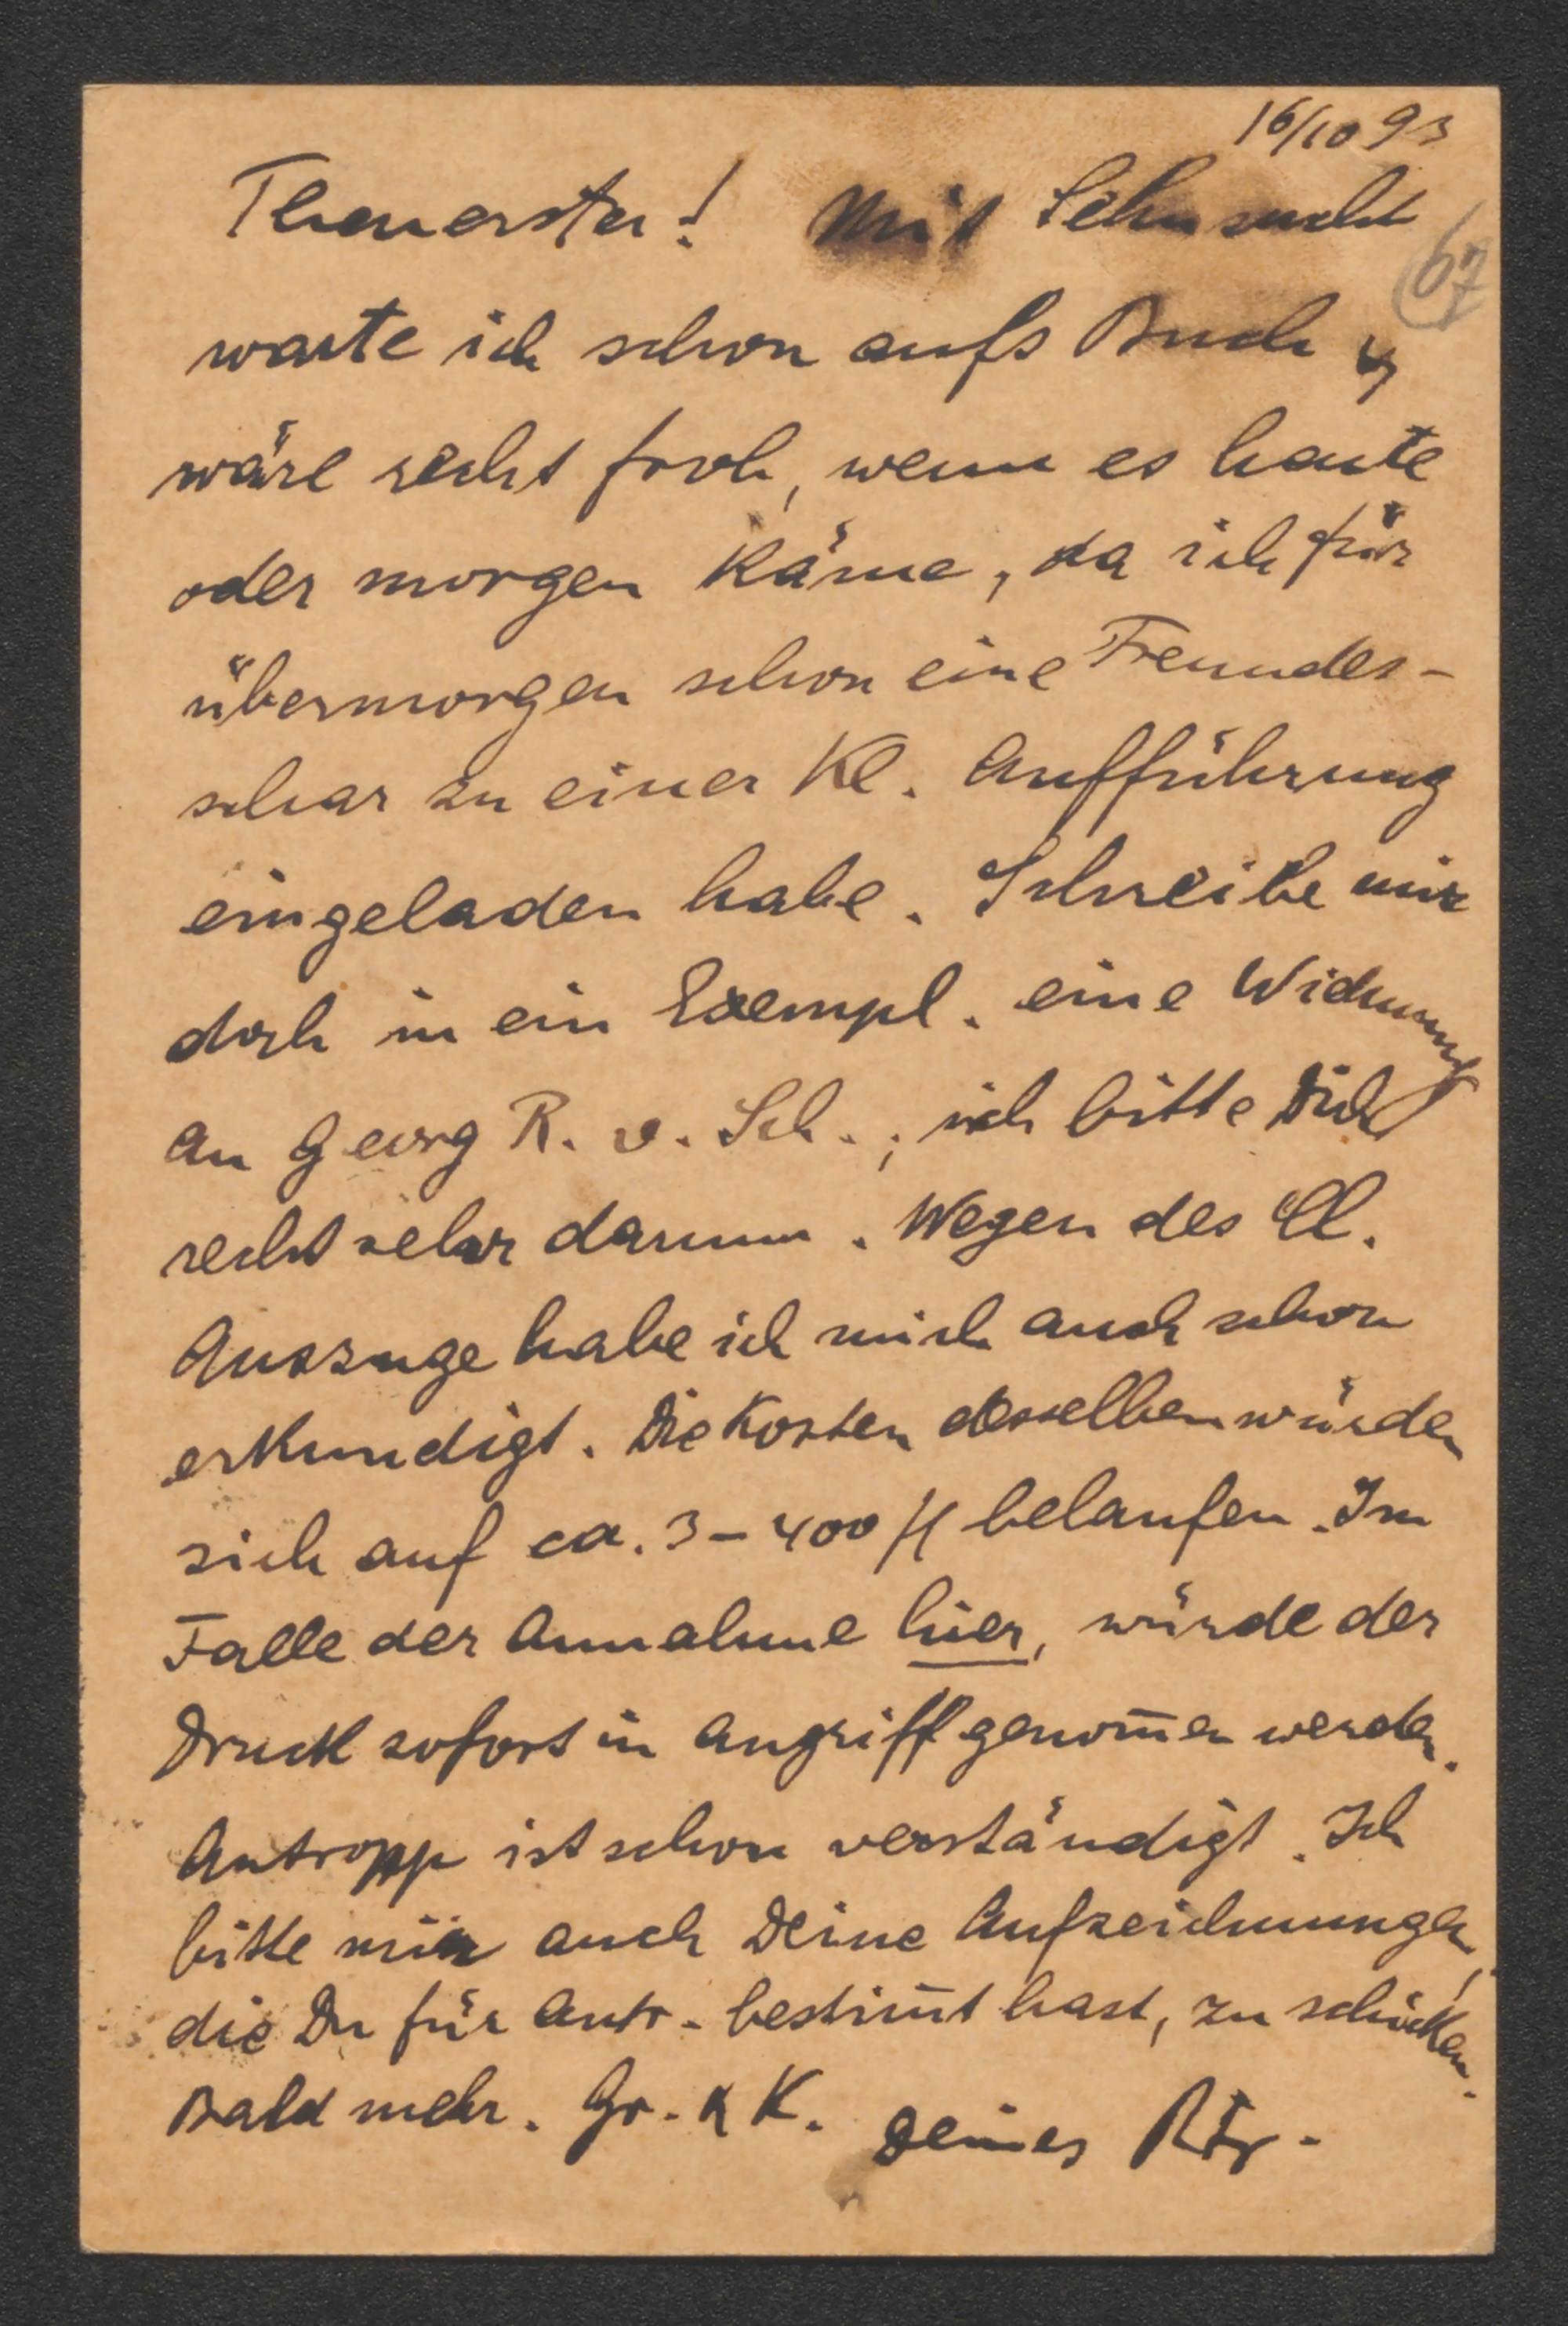 16/10 93
Theuerster! Mit Sehnsucht
67
warte ich schon aufs Buch u
wäre recht froh, wenn es heute
oder morgen käme, da ich für
übermorgen schon eine Freundes-
schar zu einer kl. Aufführung
eingeladen habe. Schreibe mir
doch in ein Exempl. eine Widmung
an Georg R. v. Sch.; ich bitte Dich
recht sehr darum. Wegen des Cl.
Auszuge habe ich mich auch schon
erkundigt. Die Kosten desselben würden
sich auf ca. 3-400 fl belaufen. Im
Falle der Annahme hier, würde der
Druck sofort in Angriff genom̅en werden.
Antropp ist schon verständigt. Ich
bitte mir auch Deine Aufzeichnungen,
die Du für Antr. bestim̅t hast, zu schicken.
Bald mehr. Gr. & K. Deines